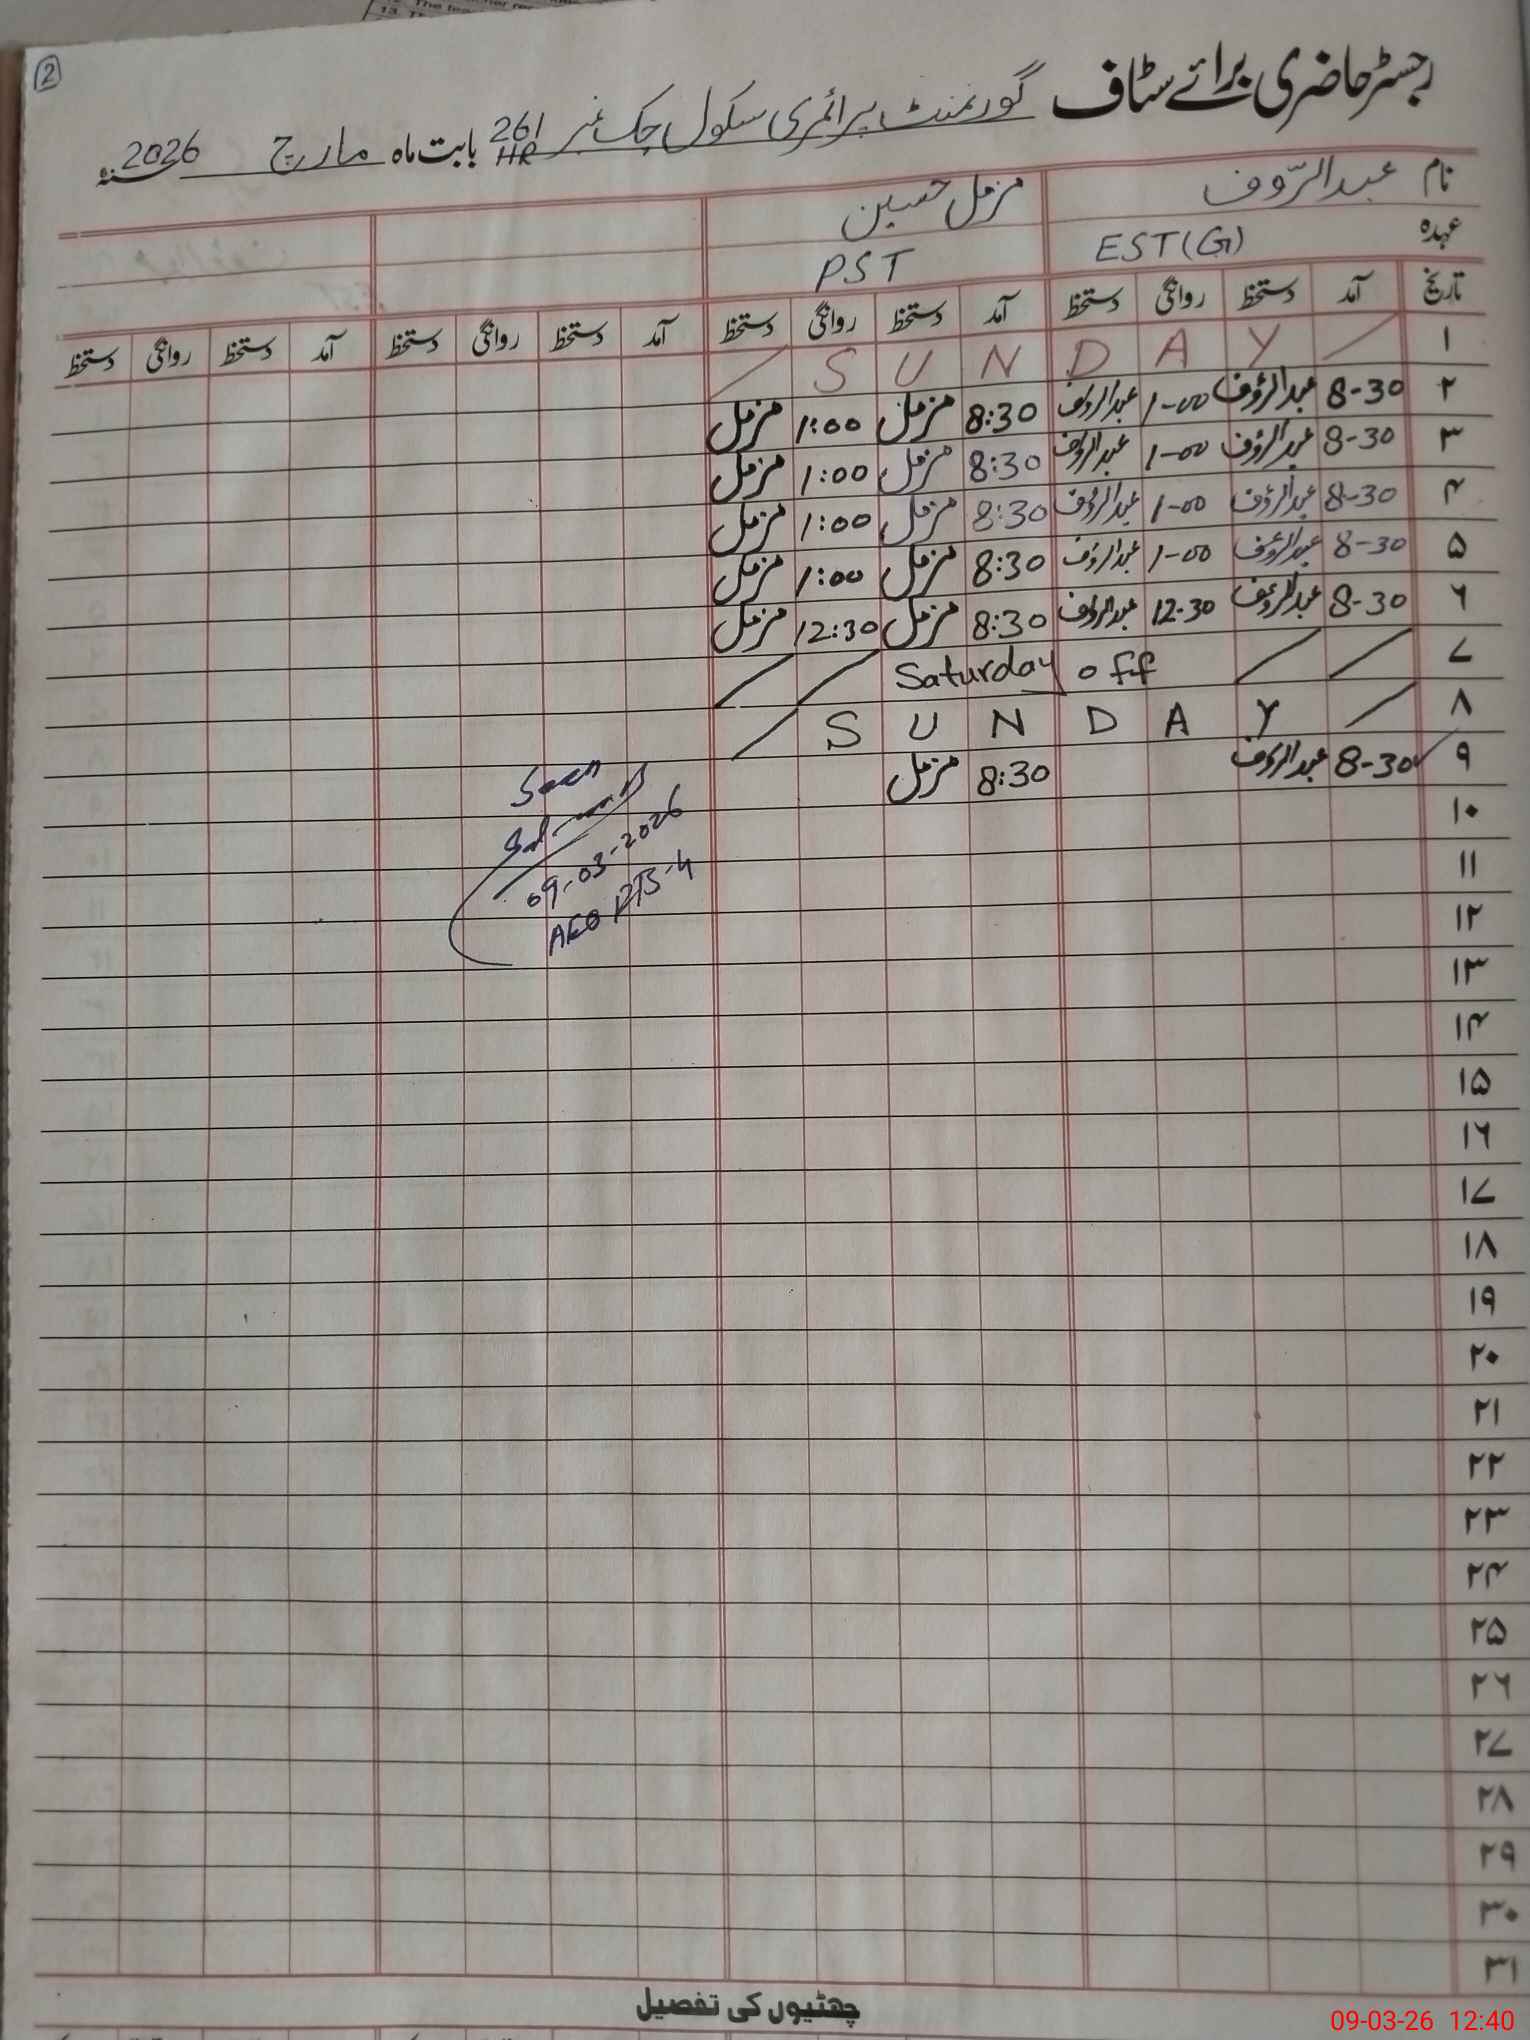 2
رجسٹر حاضری برائے سٹاف گورنمنٹ پرائمری سکول چک نمبر 261/HR بابت ماہ مارچ سنہ 2026
نام عبدالرّؤف مزمل حسین
عہدہ EST(G) PST
تاریخ آمد دستخط روانگی دستخط آمد دستخط روانگی دستخط آمد دستخط روانگی دستخط آمد دستخط روانگی دستخط
۱ S U N D A Y
۲ 8-30 عبدالرؤف 1-00 عبدالرؤف 8:30 مزمل 1:00 مزمل
۳ 8-30 عبدالرؤف 1-00 عبدالرؤف 8:30 مزمل 1:00 مزمل
۴ 8-30 عبدالرؤف 1-00 عبدالرؤف 8:30 مزمل 1:00 مزمل
۵ 8-30 عبدالرؤف 1-00 عبدالرؤف 8:30 مزمل 1:00 مزمل
۶ 8-30 عبدالرؤف 12-30 عبدالرؤف 8:30 مزمل 12:30 مزمل
۷ Saturday off
۸ S U N D A Y
۹ 8-30 عبدالرؤف 8:30 مزمل
Seen
09-03-2026
AEO
۱۰
۱۱
۱۲
۱۳
۱۴
۱۵
۱۶
۱۷
۱۸
۱۹
۲۰
۲۱
۲۲
۲۳
۲۴
۲۵
۲۶
۲۷
۲۸
۲۹
۳۰
۳۱
چھٹیوں کی تفصیل
09-03-26 12:40